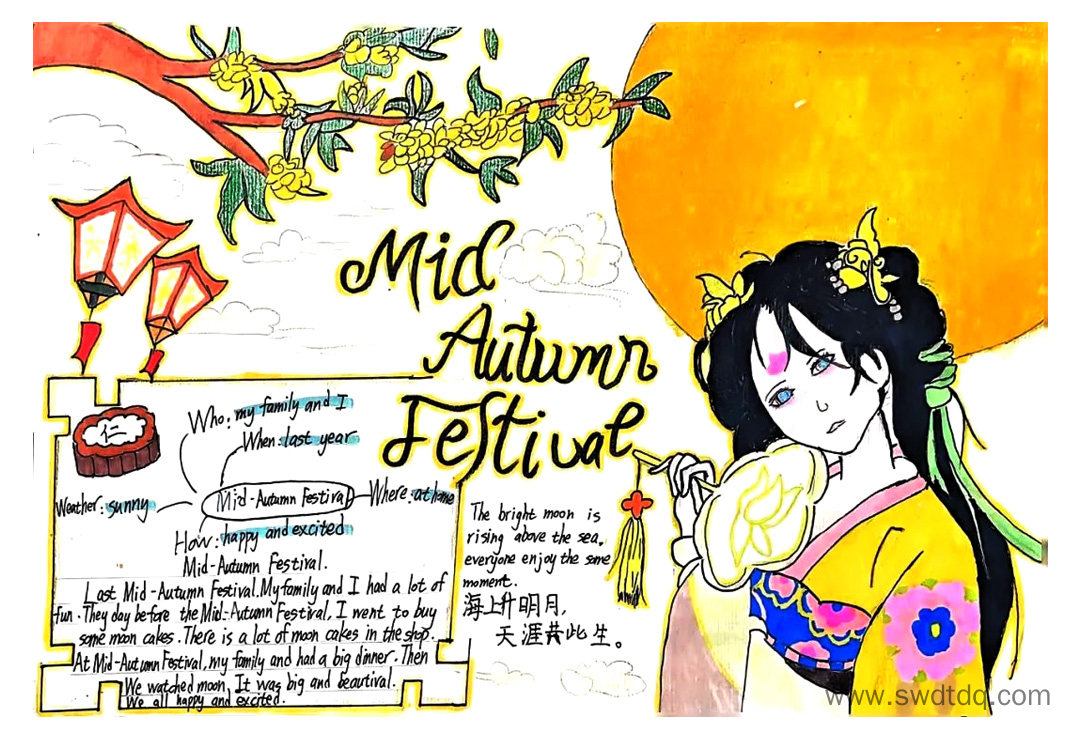 Mid
Autumn
Festival
仁
Who: my family and I
When: last year
Weather: sunny
Mid-Autumn Festival
Where: at home
How: happy and excited
Mid-Autumn Festival.
Last Mid-Autumn Festival. My family and I had a lot of
fun. They day before the Mid-Autumn Festival, I went to buy
some moon cakes. There is a lot of moon cakes in the shop.
At Mid-Autumn Festival, my family and had a big dinner. Then
We watched moon. It was big and beautival.
We all happy and excited.
The bright moon is
rising above the sea,
everyone enjoy the same
moment.
海上升明月,
天涯此生。
www.swdtdq.com